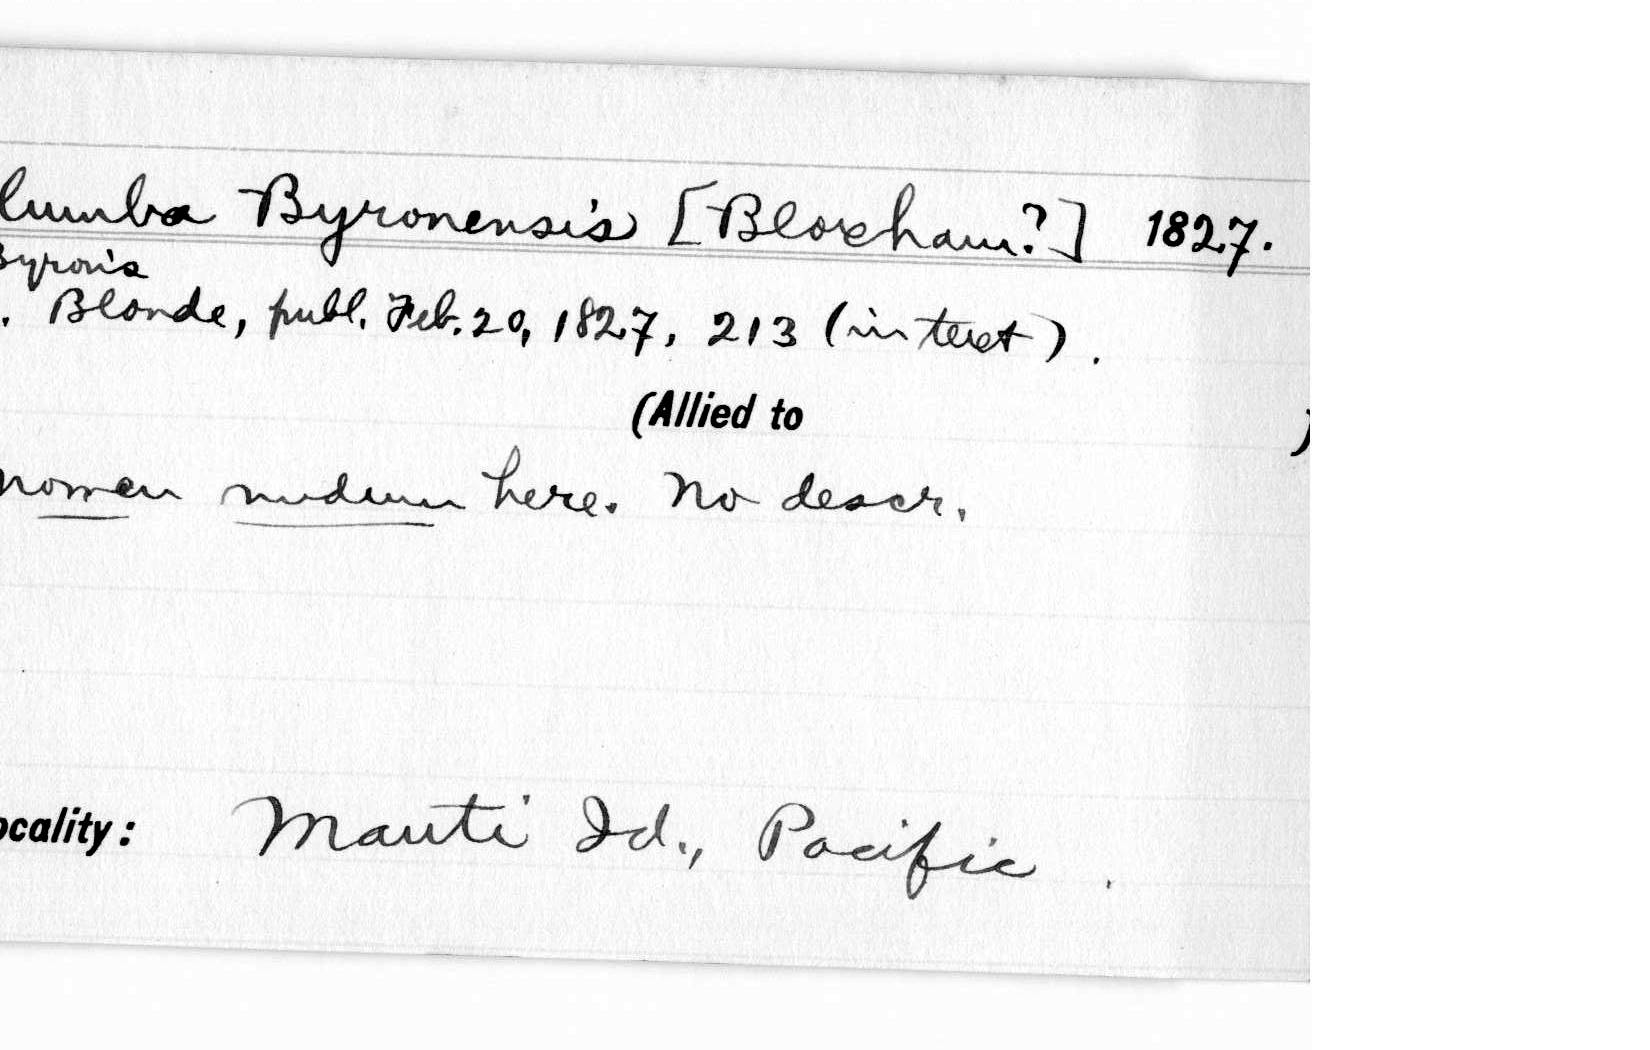 lumba Byronensis [Bloxham?] 1827.
Byron's
. Blonde, publ. Feb. 20, 1827, 213 (in text).
(Allied to )
nomen nudum here. No descr.
ocality: Mauti Id., Pacific.